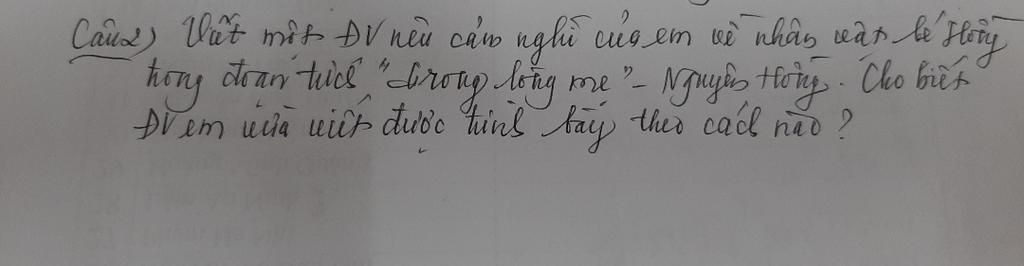 Câu 2) Viết một ĐV nêu cảm nghĩ của em về nhân vật bé Hồng
trong đoạn trích "Trong lòng mẹ" - Nguyên Hồng. Cho biết
ĐV em vừa viết được trình bày theo cách nào?